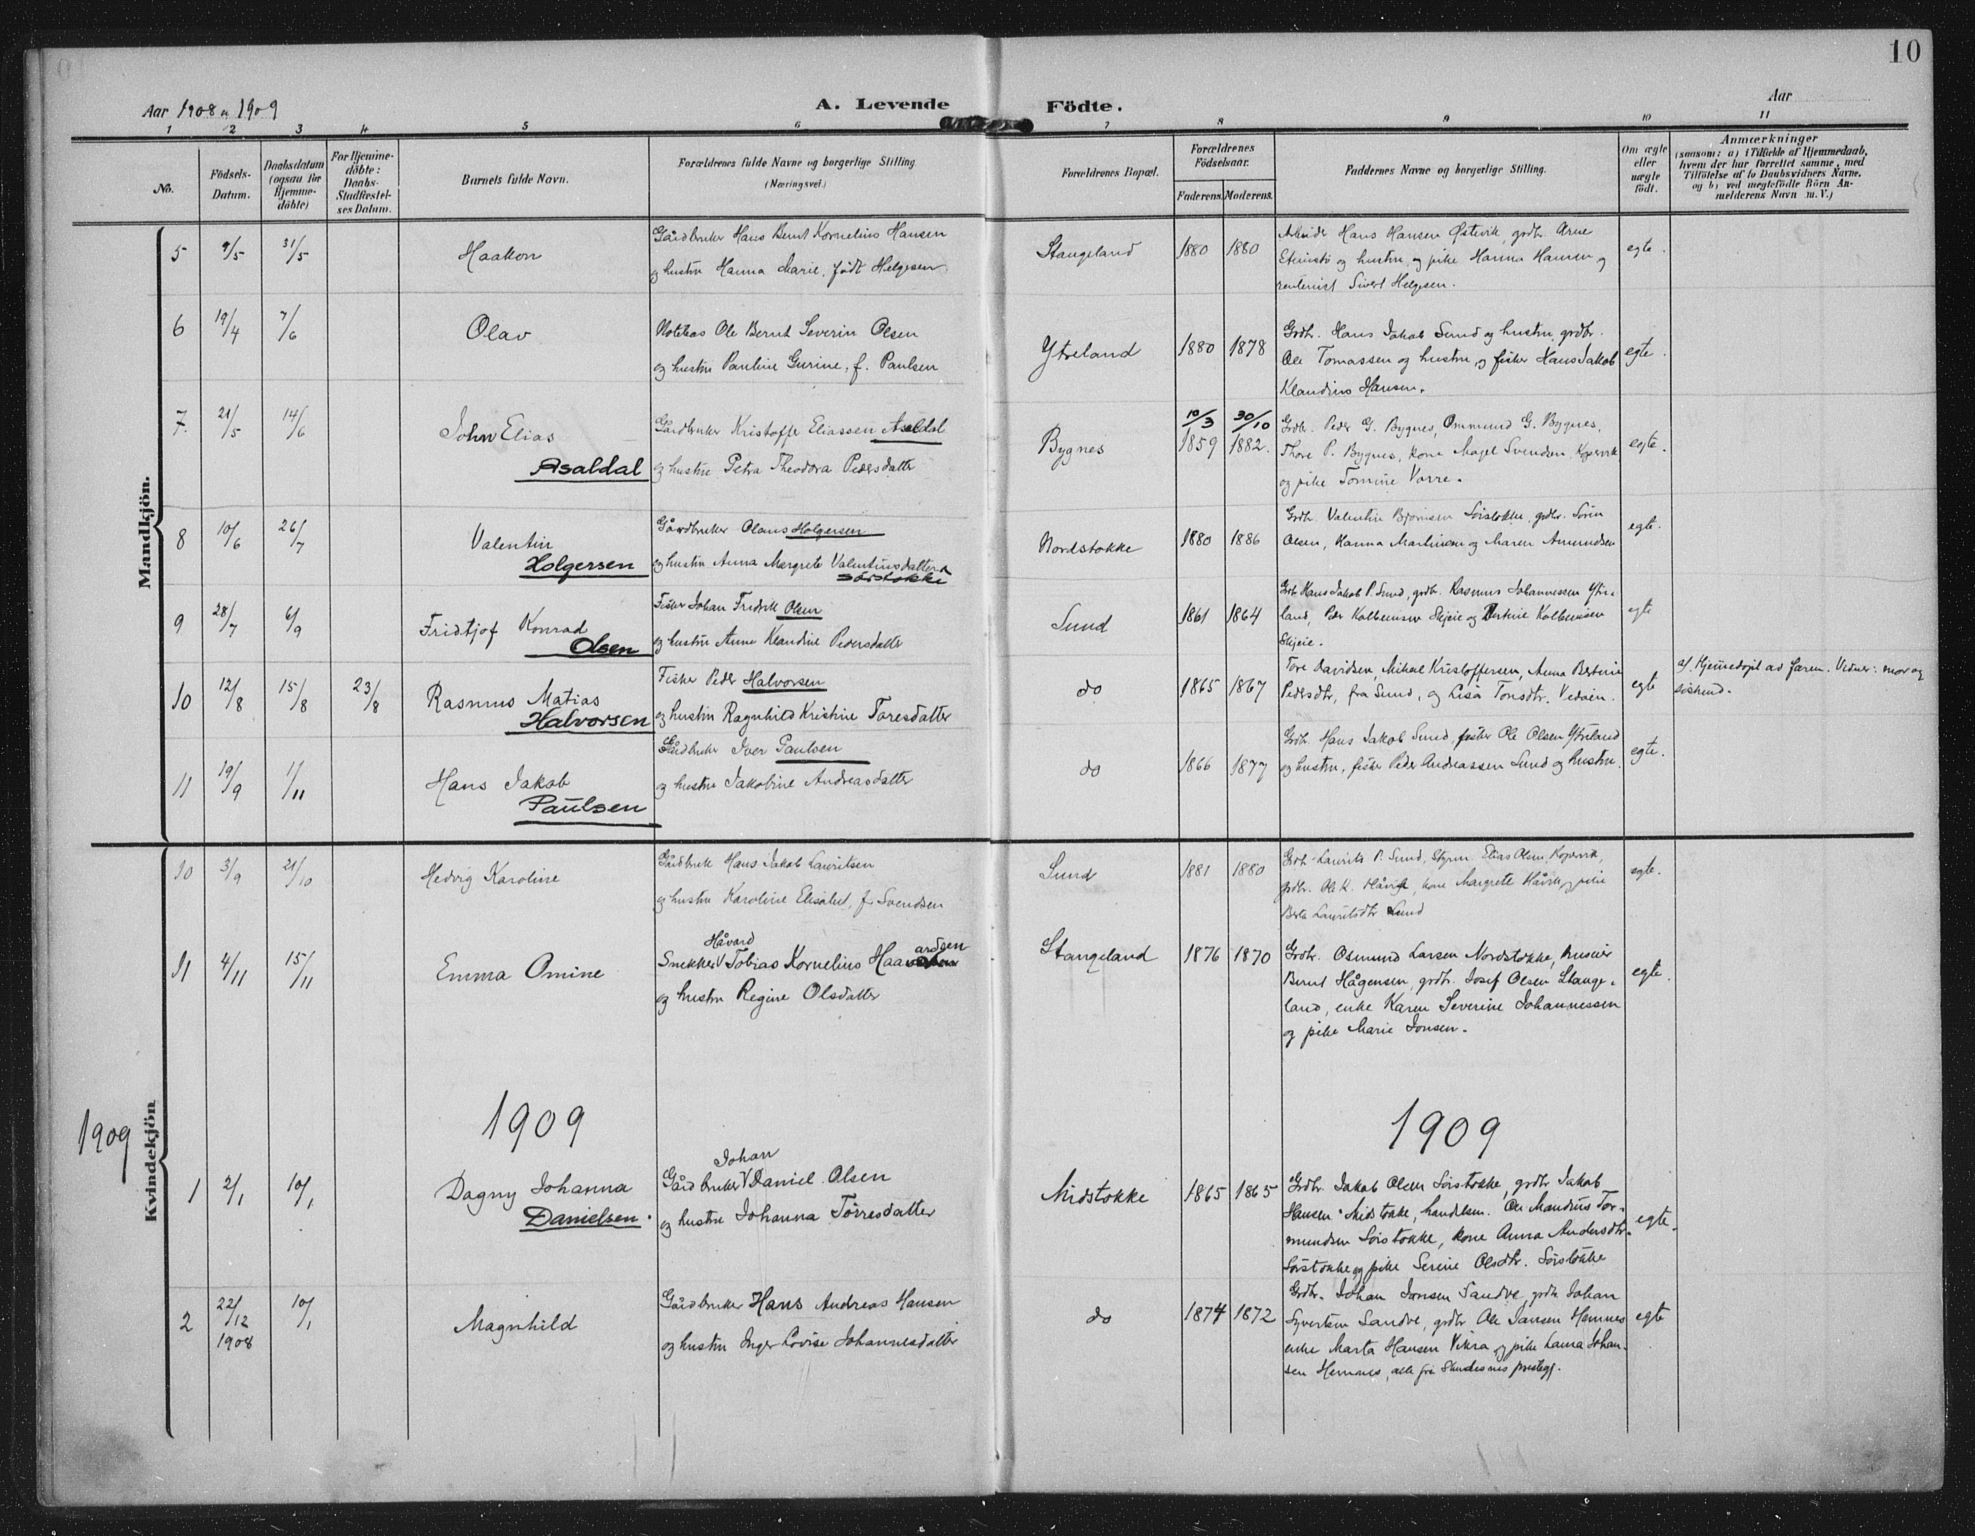 10
Aar 1908 & 1909
A. Levende Födte.
Aar
1 2 3 4 5 6 7 8 9 10 11
No.
Födsels-Datum.
Daabsdatum (ogsaa for Hjemme-döbte)
For Hjemme-döbte: Daabs-Stadfæstel-ses Datum.
Barnets fulde Navn.
Forældrenes fulde Navne og borgerlige Stilling. (Næringsvei.)
Forældrenes Bopæl.
Forældrenes Födselsaar.
Faderens. Moderens.
Faddernes Navne og borgerlige Stilling.
Om ægte eller uægte födt.
Anmærkninger
(saasom: a) i Tilfælde af Hjemmedaab, hvem der har forrettet samme, med Tilföielse af to Daabsvidners Navne. og b) ved uægtefödte Börn An-melderens Navn m. V.)
Mandkjön.
5 9/5 31/5 Haakon
Gårdbruker Hans Bernt Kornelius Hansen
og hustru Hanna Marie, født Helgesen
Stangeland 1880 1880
Hans Hansen Østevik, grdbr. Arne
og hustru, og pike Hanna Hansen og
Sivert Helgesen.
egte.
6 19/4 7/6 Olav
Ole Bernt Severin Olsen
og hustru Pauline Gurine, f. Paulsen
Ytreland 1880 1878
Grdbr. Hans Jakob Sund og hustru, grdbr.
Ole Tomassen og hustru og fisker Hans Jakob
Klaudius Hansen.
egte.
7. 21/5 14/6 John Elias
Asaldal
Gårdbruker Kristoffer Eliassen Asaldal
og hustru Petra Theodora Pedersdatter
Bygnes 10/3 1859 30/10 1882.
Grdbr. Peder G. Bygnes, Ommund G. Bygnes,
Thore P. Bygnes, kone Magel Svendsen, Kopervik
og pike Tomine Vorre.
egte.
8 10/6 26/7 Valentin
Holgersen
Gårdbruker Olaus Holgersen
og hustru Anna Margrete Valentinsdatter
Sørstokke
Nordstokke 1880 1886
Grdbr. Valentin Bjørnsen Sørstokke, grdbr. Sören
Olsen, Hanna Martinsen og Maren Amundsen
egte.
9 28/7 6/9 Fridtjof Konrad
Olsen
Fisker Johan Fredrik Olsen
og hustru Anne Klaudine Pedersdatter
Sund 1861 1864
Grdb. Hans Jakob P. Sund, grdb. Rasmus Johannessen Ytre-
land, Peder Kolbensen Skjeie og Bertine Kolbensen
Skjeie.
egte
10 12/8 15/8 23/8 Rasmus Matias
Halvorsen
Fisker Peder Halvorsen
og hustru Ragnhild Kristine Toresdatter
do 1865 1867
Tore Davidsen, Mikal Kristoffersen, Anna Bertine
Pedersdtr, fra Sund, og Lisa Tonsdtr. Vedøen.
egte
a/ Hjemmedöpt av faren. Vidner: mor og
søskend.
11 19/9 1/11 Hans Jakob
Paulsen
Gårdbruker Iver Paulsen
og hustru Jakobine Andreasdatter
do 1866 1877
Grdbr. Hans Jakob Sund, fisker Ole Olsen Ytreland
og hustru, fisker Peder Andreassen Sund og hustru.
egte.
Kvindekjön
10 3/9 21/10 Hedvig Karoline
Gårdbruk Hans Jakob Lauritsen
og hustru Karoline Elisabet, f. Svendsen
Sund 1881 1880
Grdb. Laurits P. Sund, Styrm. Elias Olsen, Kopervik,
grdbr. Ole K. Håvik, kone Margrete Håvik og pike
Berta Lauritsdtr Sund
egte.
11 4/11 15/11 Emma Omine
Håvard
Snekker V Tobias Kornelius Haavardsen
og hustru Regine Olsdatter
Stangeland 1876 1870
Grdbr. Osmund Larsen Nordstokke,
Bernt Hågensen, grdbr. Josef Olsen Stange-
land, enke Karen Severine Johannessen
og pike Marie Jonsen.
egte.
1909
1909 1909
1 2/1 10/1 Dagny Johanna
Danielsen.
Johan
Gårdbruker V Daniel Olsen
og hustru Johanna Tørresdatter
Midstokke 1865 1865
Grdbr. Jakob Olsen Sørstokke, grdbr Jakob
Hansen Midstokke, handlesm. Ole Mandius Tor-
mundsen Sørstokke, kone Anna Andersdtr.
Sørstokke og pike Serine Olsdtr. Sørstokke
egte.
2 22/12 1908 10/1 Magnhild
Gårdbruker Hans Andreas Hansen
og hustru Inger Lovise Johannesdatter
do 1874 1872
Grdbr. Johan Jonsen Sandve, grdbr Johan
Syvertsen Sandve, grdbr Ole Jansen Hemnes
enke Marta Hansen Vikra og pike Laura Johan-
sen Hemnes, alle fra Skudesnes prestegj.
egte